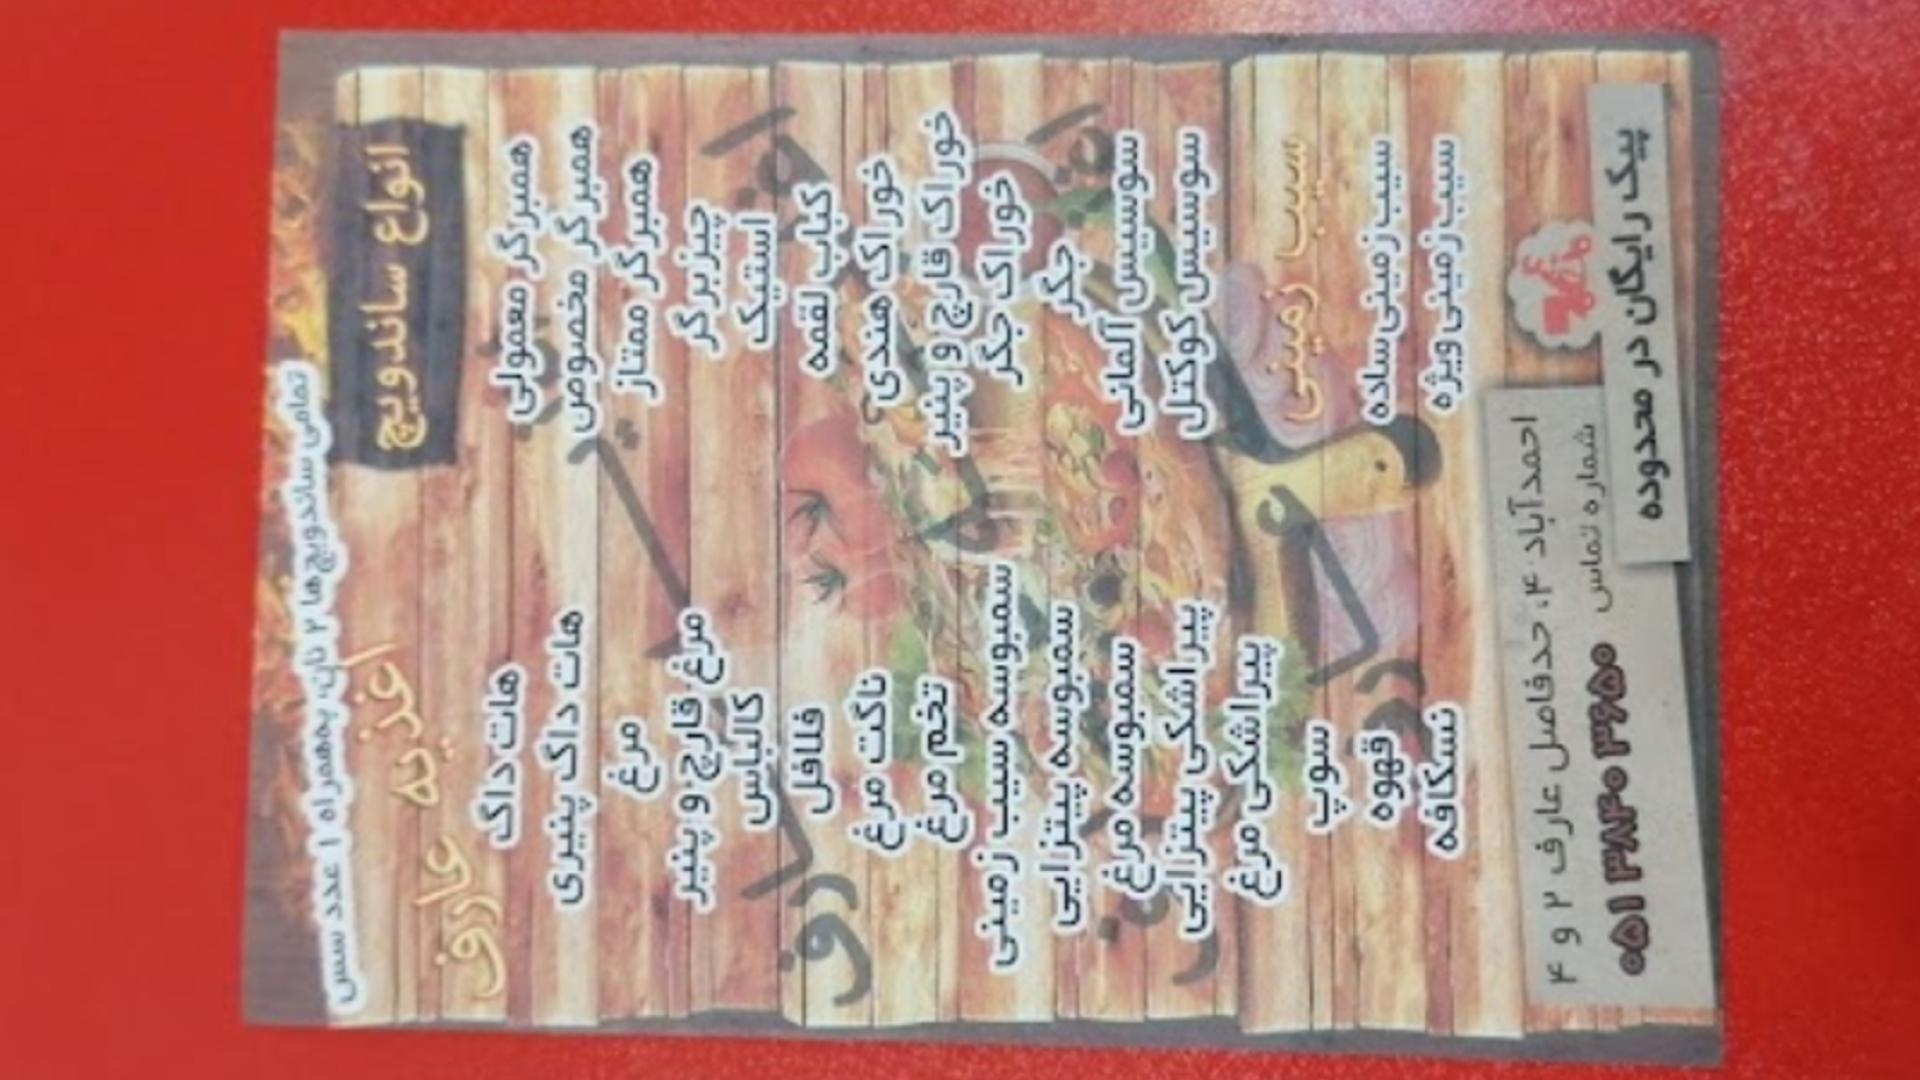 تمامی ساندویچ‌ها ۲ نان، به‌همراه ۱ عدد سس
اغذیه
عارف
انواع ساندویچ
همبرگر معمولی
همبرگر مخصوص
همبرگر ممتاز
چیزبرگر
استیک
کباب لقمه
خوراک هندی
خوراک قارچ و پنیر
خوراک جگر
جگر
سوسیس آلمانی
سوسیس کوکتل
سیب زمینی
سیب زمینی ساده
سیب زمینی ویژه
هات داگ
هات داگ پنیری
مرغ
مرغ قارچ و پنیر
کالباس
فلافل
ناگت مرغ
تخم مرغ
سمبوسه سیب زمینی
سمبوسه پیتزایی
سمبوسه مرغ
پیراشکی پیتزایی
پیراشکی مرغ
سوپ
قهوه
نسکافه
پیک رایگان در محدوده
احمدآباد ۴، حدفاصل عارف ۲ و ۴
شماره تماس